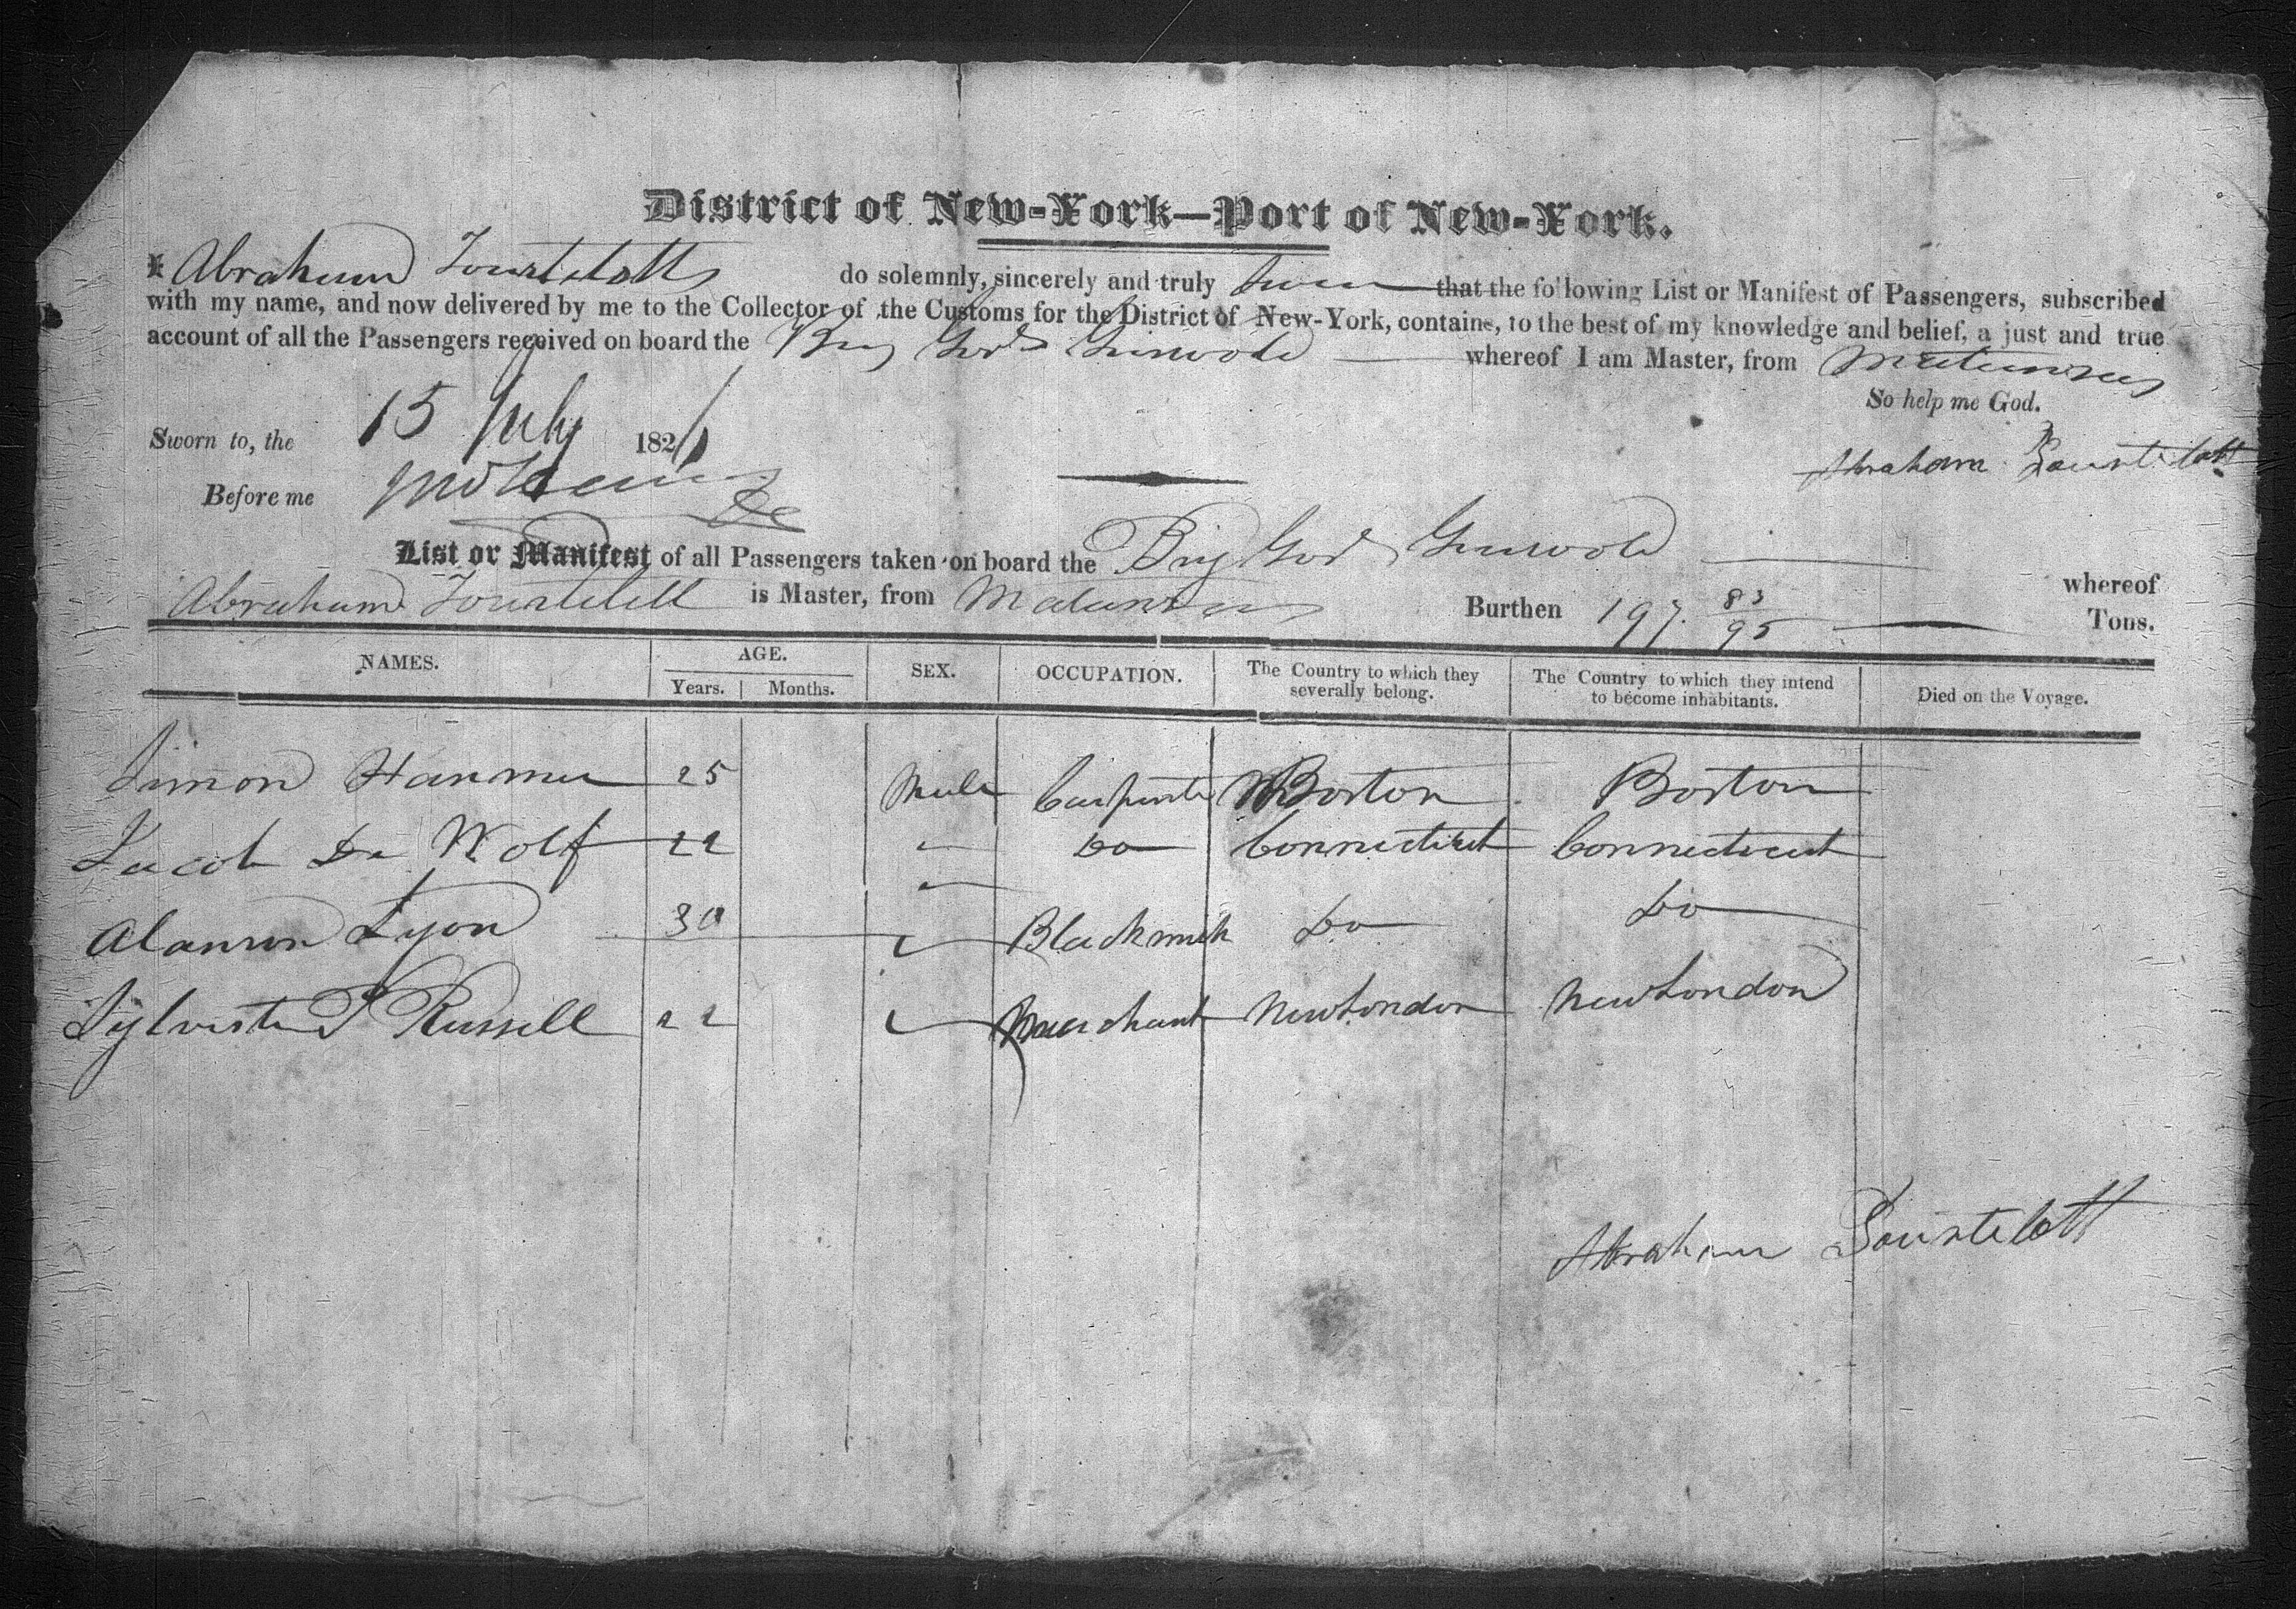 District of New-York—Port of New-York.
I Abraham Tourtelott do solemnly, sincerely and truly swear that the following List or Manifest of Passengers, subscribed
with my name, and now delivered by me to the Collector of the Customs for the District of New-York, contains, to the best of my knowledge and belief, a just and true
account of all the Passengers received on board the Brig Gov Griswold whereof I am Master, from Matanzas
So help me God.
Sworn to, the 15 July 1821
Abraham Tourtelott
Before me
List or Manifest of all Passengers taken on board the Brig Gov Griswold whereof
Abraham Tourtelott is Master, from Matanzas Burthen 197 83/95 Tons.
NAMES. AGE. SEX. OCCUPATION. The Country to which they severally belong. The Country to which they intend to become inhabitants. Died on the Voyage.
Years. Months.
Simon Hanmer 25 Male Carpenter Boston Boston
Jacob De Wolf 22 " Do Connecticut Connecticut
Alanson Lyon 30 " Blacksmith Do Do
Sylvester S Russell 22 " Merchant New London New London
Abraham Tourtelott